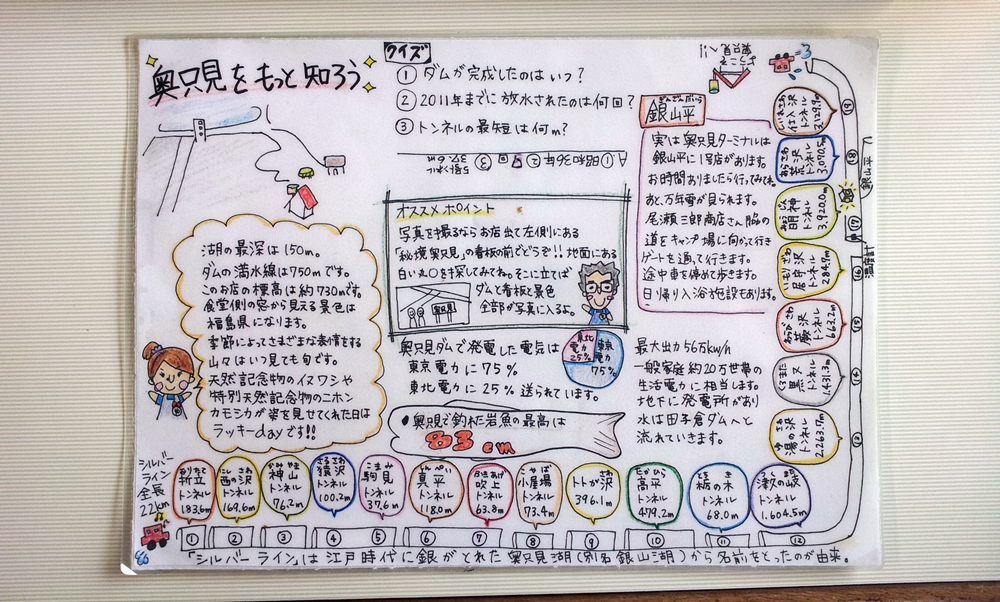 奥只見をもっと知ろう
クイズ
① ダムが完成したのはいつ?
② 2011年までに放水されたのは何回?
③ トンネルの最短は何m?
A ① 昭和36年 ②
③
37.6m
湖の最深は150m。
ダムの満水線は750mです。
このお店の標高は約730mです。
食堂側の窓から見える景色は
福島県になります。
季節によってさまざまな表情をする
山々はいつ見ても旬です。
天然記念物のイヌワシや
特別天然記念物のニホン
カモシカが姿を見せてくれた日は
ラッキーdayです!!
オススメポイント
写真を撮るならお店出て左側にある
「秘境奥只見」の看板の前でどうぞ!!地面にある
白い丸○を探してみてね。そこに立てば
ダムと看板と景色
全部が写真に入るよ。
奥只見
奥只見ダムで発電した電気は
東京電力に75%
東北電力に25%送られています。
東北電力25%
東京電力75%
●奥只見で釣れた岩魚の最高は
83cm
ぎんざんだいら
銀山平
実は奥只見ターミナルは
銀山平に1号店があります。
お時間ありましたら行ってみてね。
あと、万年雪が見られます。
尾瀬三郎商店さん脇の
道をキャンプ場に向かって行き
ゲートを通って行きます。
途中車を停めて歩きます。
日帰り入浴施設もあります。
最大出力56万kw/h
一般家庭約20万世帯の
生活電力に相当します。
地下に発電所があり
水は田子倉ダムへと
流れていきます。
仕入沢トンネル 3,129.9m
荒沢トンネル 3,070.5m
明神トンネル 3,920.0m
トンネル
トンネル 663.2m
黒又トンネル 1,431.3m
湯の沢トンネル 2,263.7m
銀山平
シルバーライン全長22km
折立トンネル 183.6m
西の沢トンネル 169.6m
かみやま 神山トンネル 76.2m
さるさわ 猿沢トンネル 100.2m
こまみ 駒見トンネル 37.6m
真平トンネル 118.0m
ふきあげ 吹上トンネル 63.8m
こやば 小屋場トンネル 73.4m
トトが沢 396.1m
たかひら 高平トンネル 479.2m
とちのき 栃の木トンネル 68.0m
トンネル 1,604.5m
① ② ③ ④ ⑤ ⑥ ⑦ ⑧ ⑨ ⑩ ⑪ ⑫
「シルバーライン」は江戸時代に銀がとれた奥只見湖(別名銀山湖)から名前をとったのが由来。